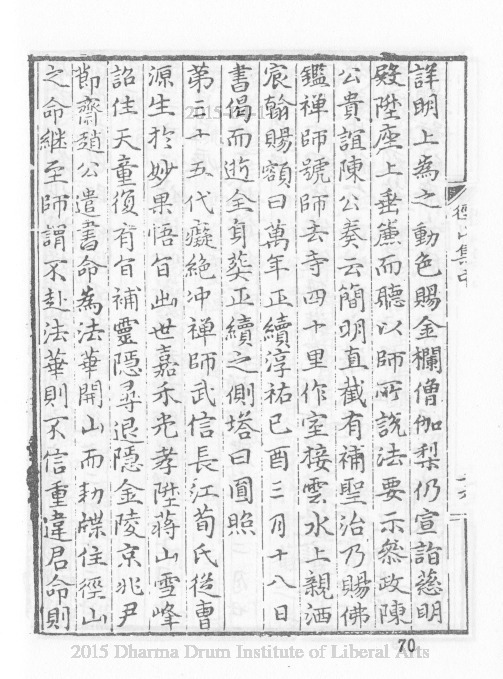 詳明上為之動色賜金襴僧伽梨仍宣詣慈明
殿陞座上垂簾而聽以師所說法要示叅政陳
公貴誼陳公奏云簡明直截有補聖治乃賜佛
鑑禪師號師去寺四十里作室接雲水上親洒
宸翰賜額曰萬年正續淳祐己酉三月十八日
書偈而逝全身葬正續之側塔曰圓照
第三十五代癡絶冲禪師武信長江荀氏從曹
源生於妙果悟旨出世嘉禾光孝陞蔣山雪峰
詔住天童復有旨補靈隱尋退隱金陵京兆尹
節齋趙公遣書命為法華開山而勑牒住徑山
之命継至師謂不赴法華則不信重違君命則
徑山集中
70
2015 Dharma Drum Institute of Liberal Arts